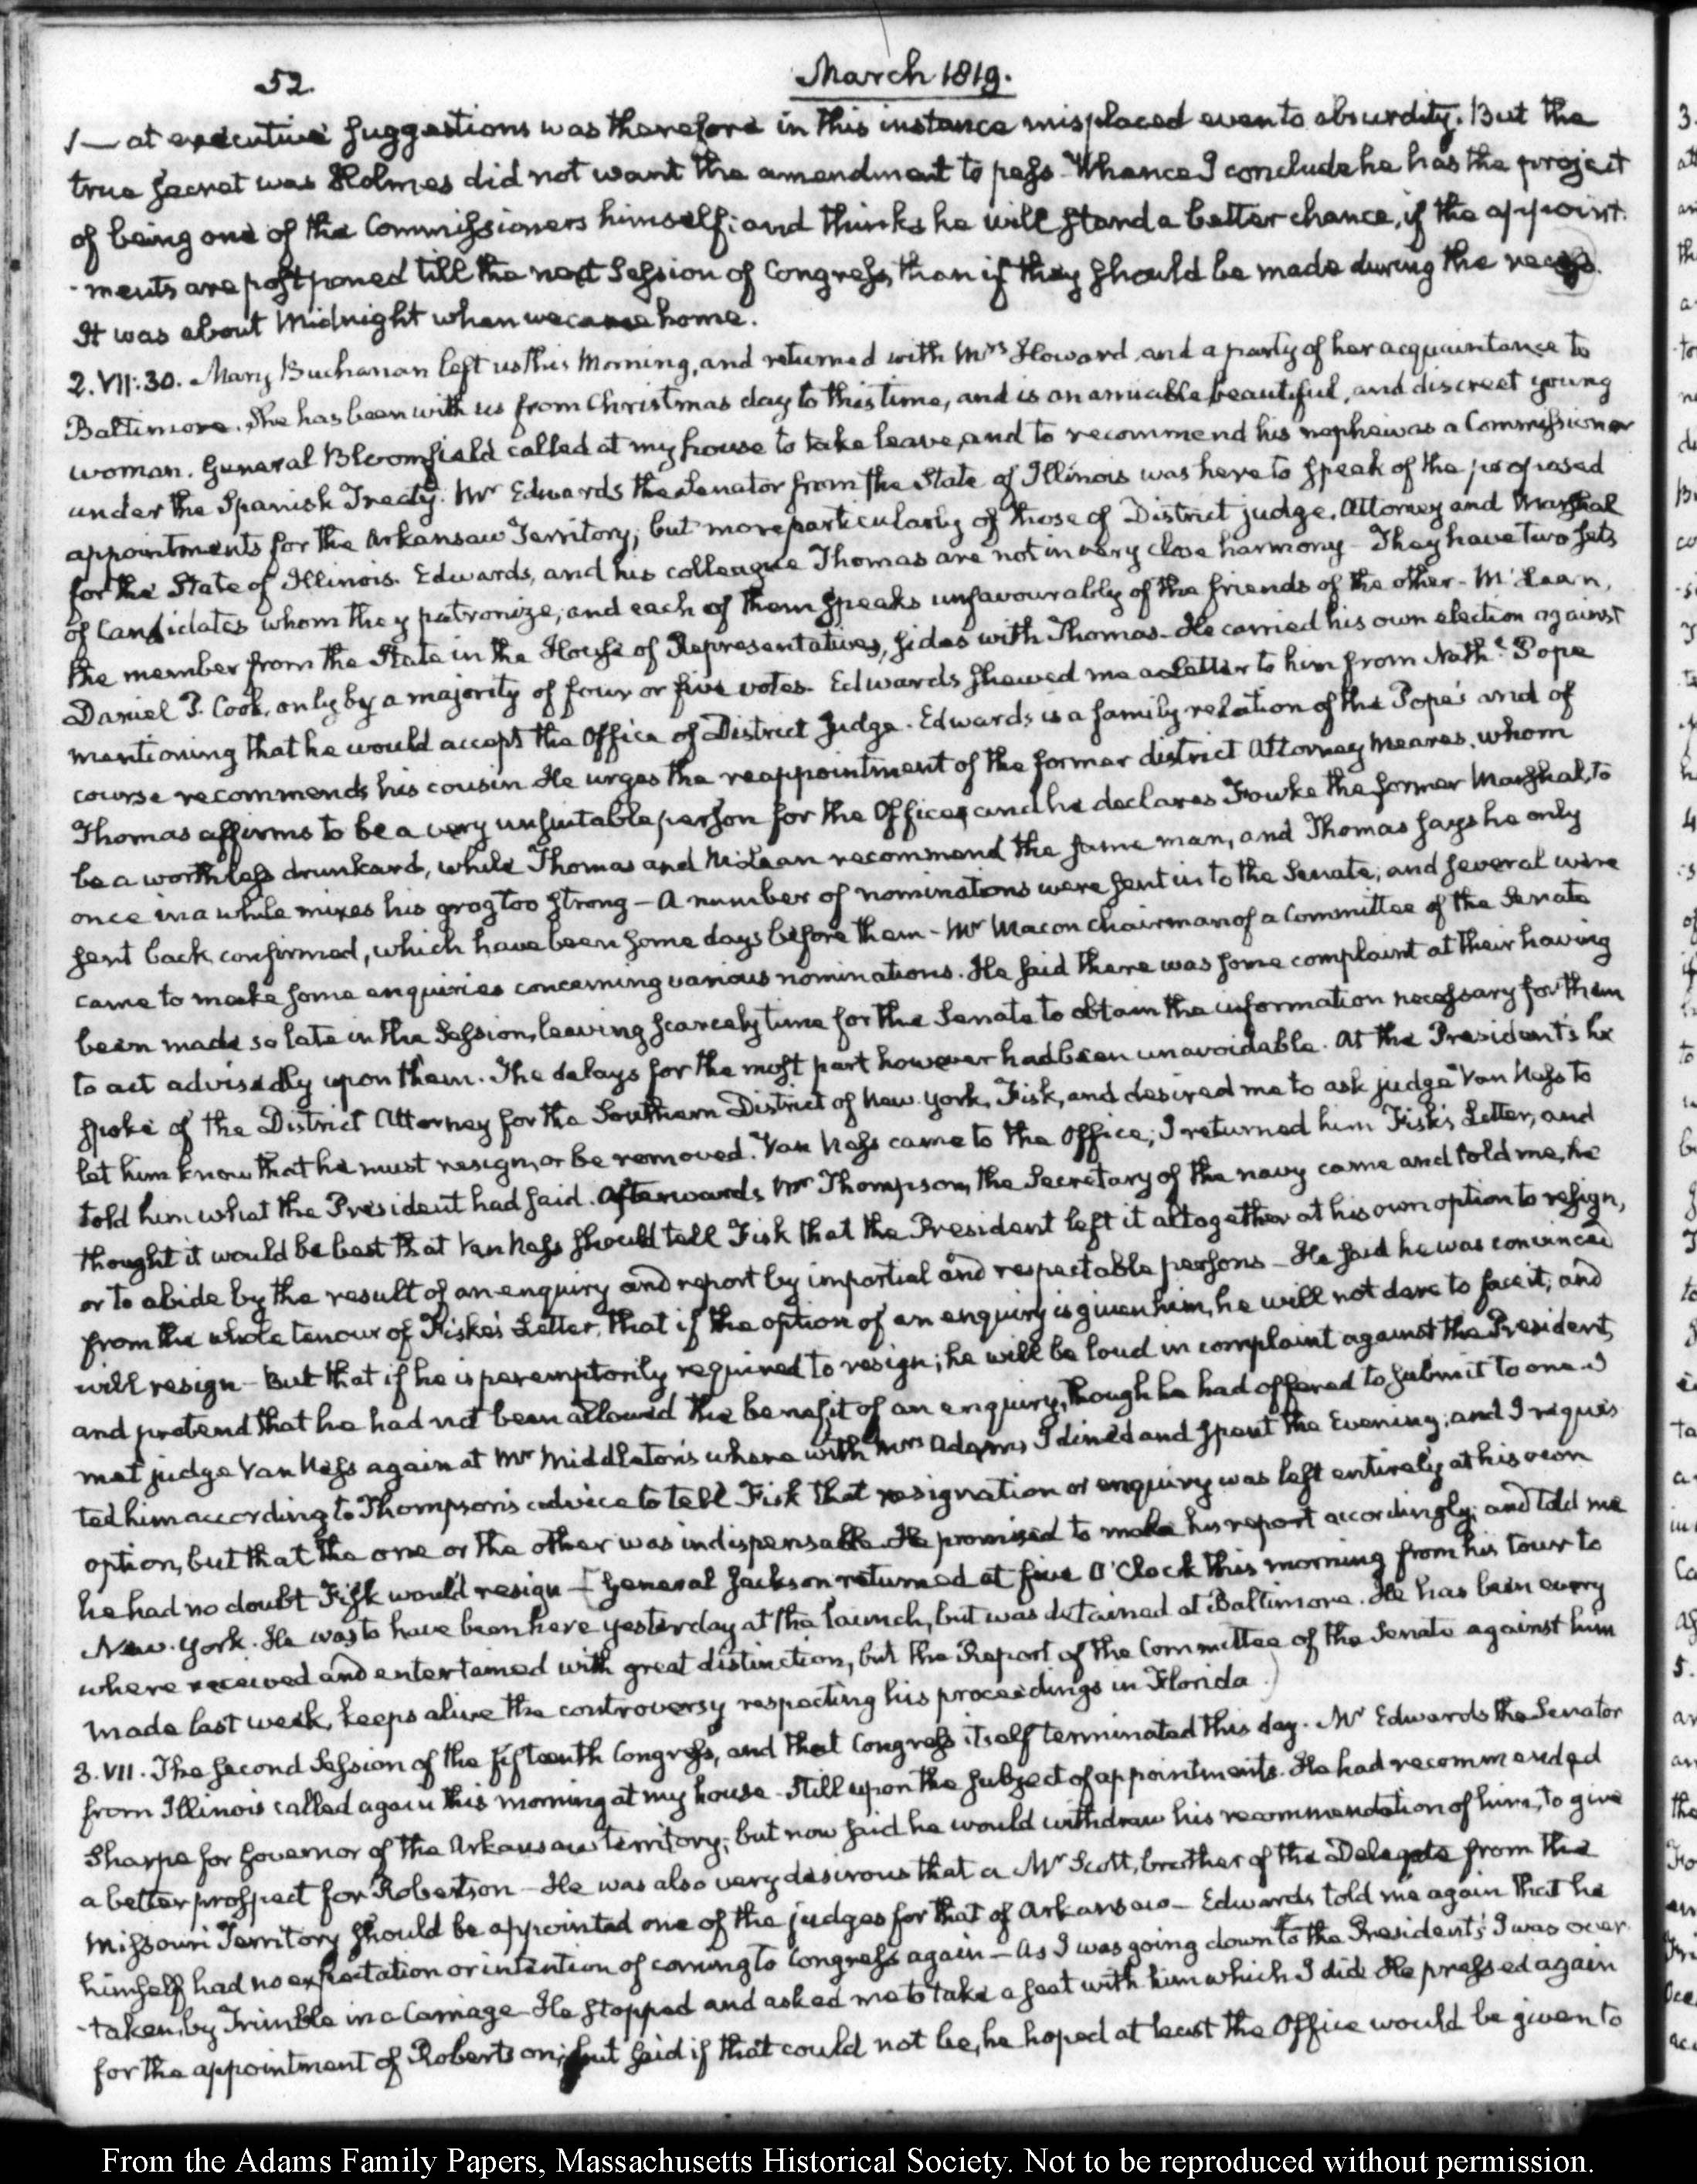 52.
March 1819.
1— at executive suggestions was therefore in this instance misplaced even to absurdity. But the
true secret was Holmes did not want the amendment to pass. Whence I conclude he has the project
of being one of the Commissioners himself; and thinks he will stand a better chance, if the appoint-
-ments are postponed till the next Session of Congress, than if they should be made during the recess.
It was about Midnight when we came home.
2. VII:30. Mary Buchanan left us this Morning, and returned with Mrs Howard and a party of her acquaintance to
Baltimore. She has been with us from Christmas day to this time, and is an amiable, beautiful, and discreet young
woman. General Bloomfield called at my house to take leave, and to recommend his nephew as a Commissioner
under the Spanish Treaty. Mr Edwards the Senator from the State of Illinois was here to speak of the proposed
appointments for the Arkansaw Territory; but more particularly of those of District judge, Attorney and Marshal
for the State of Illinois. Edwards, and his colleague Thomas are not in very close harmony- They have two sets
of Candidates whom they patronize, and each of them speaks unfavourably of the friends of the other- McLean,
the member from the State in the House of Representatives, sides with Thomas- He carried his own election against
Daniel P. Cook, only by a majority of four or five votes. Edwards shewed me a Letter to him from Nathl Pope
mentioning that he would accept the Office of District Judge. Edwards is a family relation of the Pope's and of
course recommends his cousin. He urges the reappointment of the former district Attorney Meares, whom
Thomas affirms to be a very unsuitable person for the Office, and he declares Fowke the former Marshal, to
be a worthless drunkard, while Thomas and McLean recommend the same man, and Thomas says he only
once in a while mixes his grog too strong- A number of nominations were sent in to the Senate; and several were
sent back confirmed, which have been some days before them- Mr Macon chairman of a Committee of the Senate
came to make some enquiries concerning various nominations. He said there was some complaint at their having
been made so late in the Session, leaving scarcely time for the Senate to obtain the information necessary for them
to act advisedly upon them. The delays for the most part however had been unavoidable. At the President's he
spoke of the District Attorney for the Southern District of New-York, Fisk, and desired me to ask judge Van Ness to
let him know that he must resign, or be removed. Van Ness came to the Office; I returned him Fisk's Letter, and
told him what the President had said. Afterwards Mr Thompson, the Secretary of the navy came and told me, he
thought it would be best that Van Ness should tell Fisk that the President left it altogether at his own option to resign,
or to abide by the result of an enquiry and report by impartial and respectable persons- He said he was convinced
from the whole tenour of Fiske's Letter, that if the option of an enquiry is given him, he will not dare to face it; and
will resign- But that if he is peremptorily required to resign; he will be loud in complaint against the President,
and pretend that he had not been allowed the benefit of an enquiry, though he had offered to submit to one. I
met judge Van Ness again at Mr Middleton's where with Mrs Adams I dined and spent the Evening; and I reques-
ted him according to Thompson's advice to tell Fisk that resignation or enquiry was left entirely at his own
option, but that the one or the other was indispensable. He promised to make his report accordingly; and told me
he had no doubt Fisk would resign- [General Jackson returned at five O'Clock this morning from his tour to
New-York. He was to have been here yesterday at the launch, but was detained at Baltimore. He has been every
where received and entertained with great distinction, but the Report of the Committee of the Senate against him
made last week, keeps alive the controversy respecting his proceedings in Florida.)
3. VII. The second Session of the fifteenth Congress, and that Congress itself terminated this day. Mr Edwards the Senator
from Illinois called again this morning at my house- Still upon the subject of appointments. He had recommended
Sharpe for Governor of the Arkansaw territory; but now said he would withdraw his recommendation of him, to give
a better prospect for Robertson- He was also very desirous that a Mr Scott, brother of the Delegate from the
Missouri Territory should be appointed one of the judges for that of Arkansaw- Edwards told me again that he
himself had no expectation or intention of coming to Congress again- As I was going down to the President's I was over-
-taken by Trimble in a Carriage- He stopped and asked me to take a seat with him which I did. He pressed again
for the appointment of Robertson; but said if that could not be, he hoped at least the Office would be given to
From the Adams Family Papers, Massachusetts Historical Society. Not to be reproduced without permission.